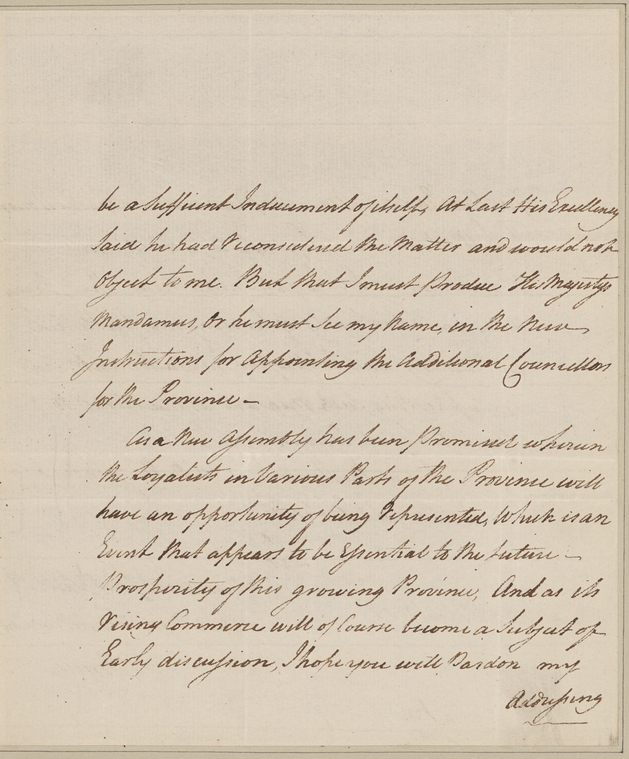 be a Sufficient Inducement of itself, At Last His Excellency
Said he had reconsidered the Matter and would not
Object to me. But that I must produce His Majestys
Mandamus, Or he must See my Name, in the New
Instructions for Appointing the Additional Councellors
for the Province —
As a New Assembly has been promised wherein
the Loyalists in Various Parts of the Province will
have an opportunity of being represented, Which is an
Event that appears to be Essential to the future —
Prosperity of this growing Province, And as its
rising Commerce will of Course become a Subject of
Early discussion, I hope you will Pardon my
Addressing